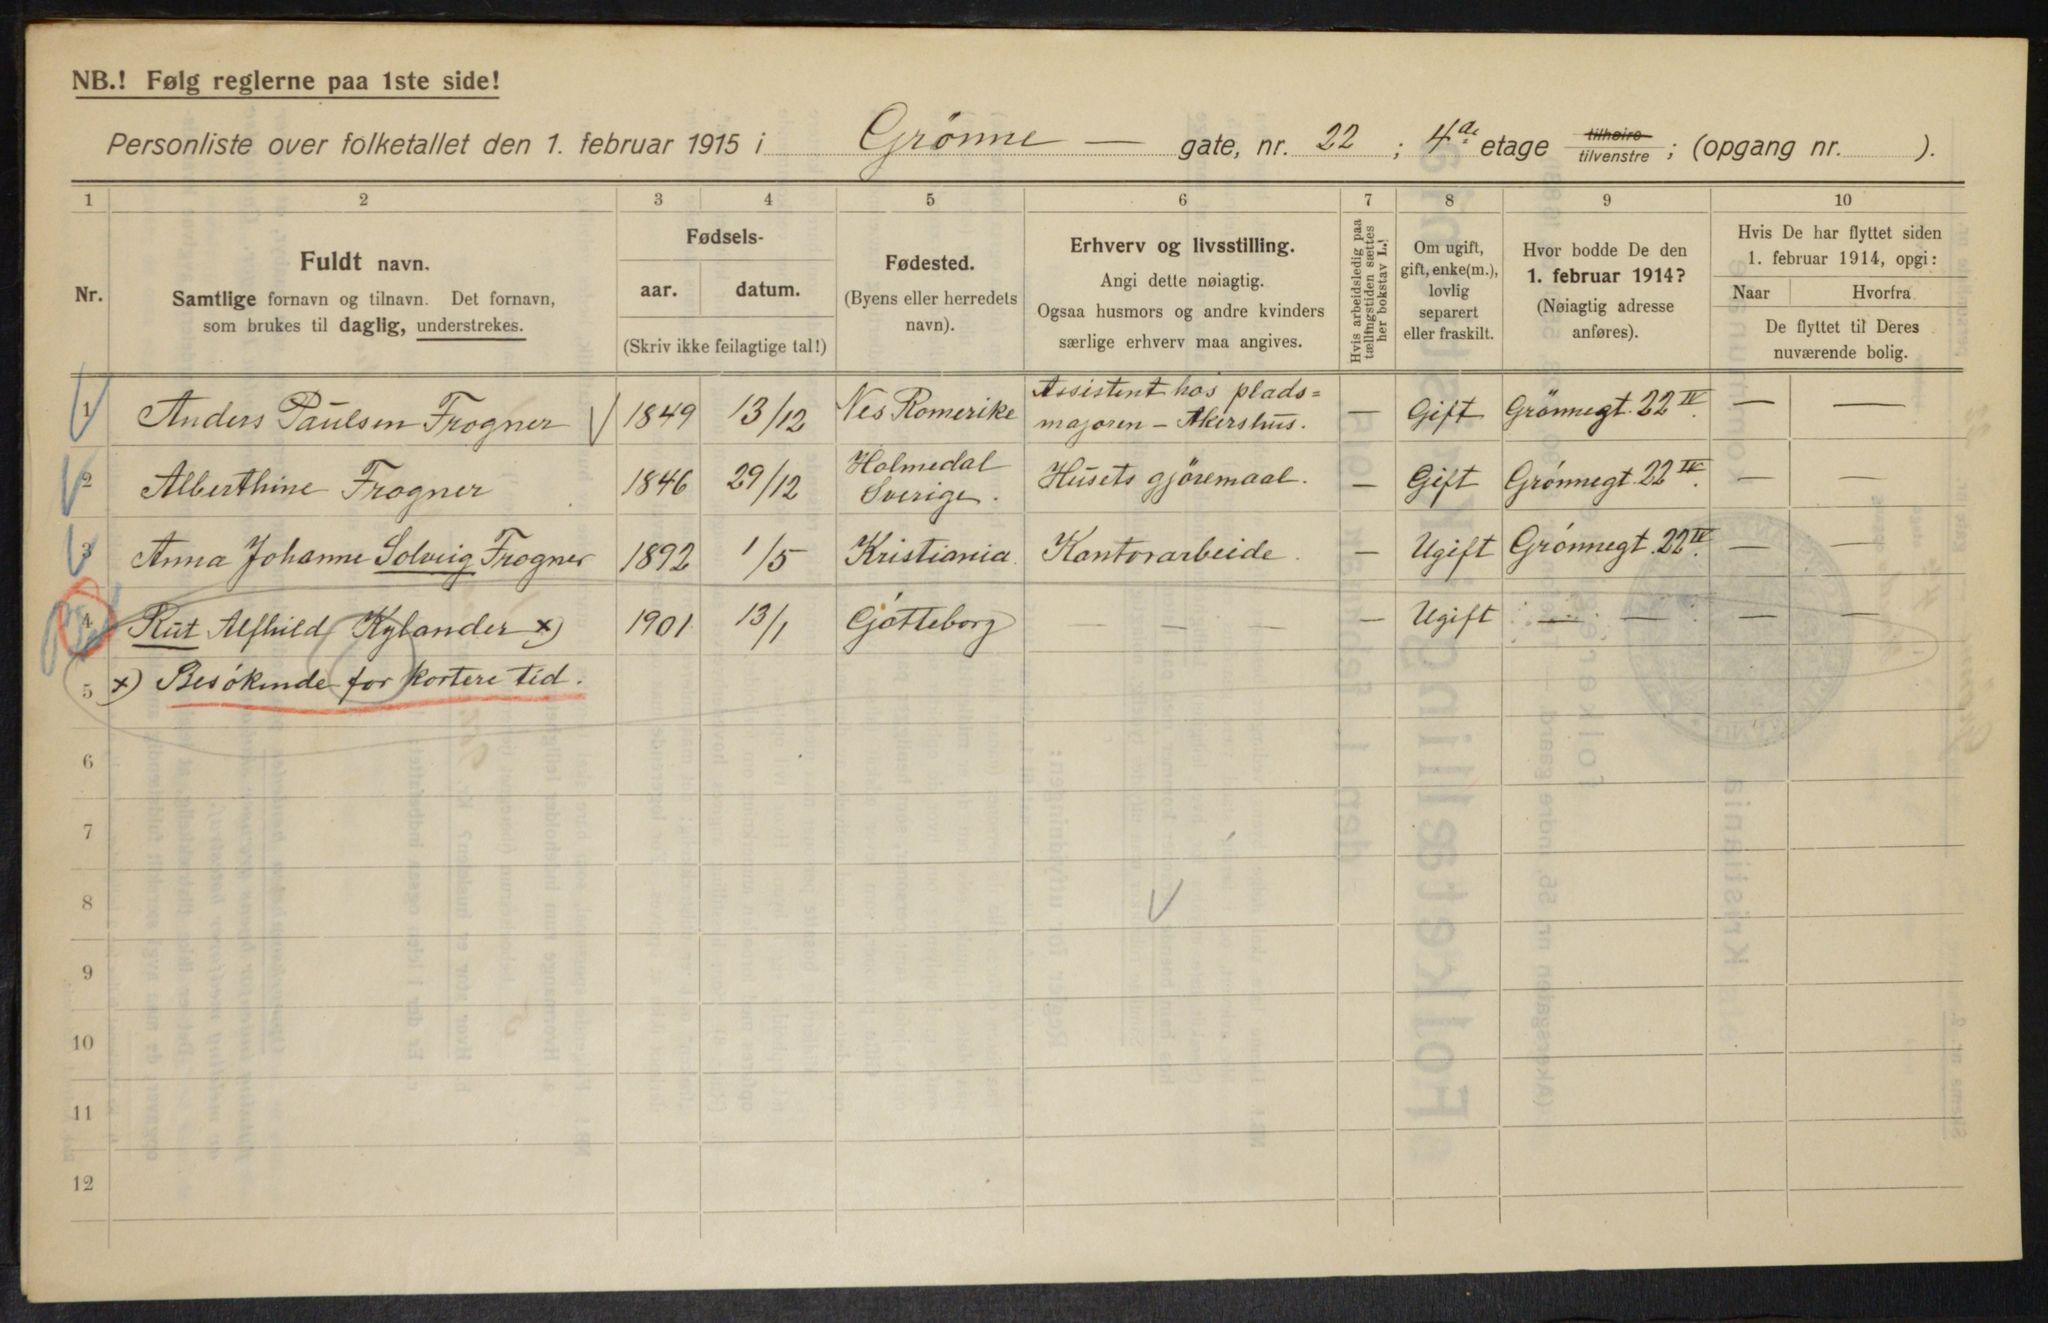 NB.! Følg reglerne paa 1ste side!
Personliste over folketallet den 1. februar 1915 i Grönne — gate, nr. 22 ; 4de etage tilhøire tilvenstre ; (opgang nr. ).
1 2 3 4 5 6 7 8 9 10
Nr.
Fuldt navn.
Samtlige fornavn og tilnavn. Det fornavn,
som brukes til daglig, understrekes.
Fødsels-
aar. datum.
(Skriv ikke feilagtige tal!)
Fødested.
(Byens eller herredets
navn).
Erhverv og livsstilling.
Angi dette nøiagtig.
Ogsaa husmors og andre kvinders
særlige erhverv maa angives.
Hvis arbeidsledig paa
tællingstiden sættes
her bokstav L.!
Om ugift,
gift, enke(m.),
lovlig
separert
eller fraskilt.
Hvor bodde De den
1. februar 1914?
(Nøiagtig adresse
anføres).
Hvis De har flyttet siden
1. februar 1914, opgi:
Naar Hvorfra
De flyttet til Deres
nuværende bolig.
1 Anders Paulsen Frogner 1849 13/12 Nes Romerike Assistent hos plads=
majoren – Akershus. — Gift Grönnegt. 22 IV. — —
2 Alberthine Frogner 1846 29/12 Holmedal
Sverige. Husets gjöremaal. — Gift Grónnegt. 22 IV. — —
3 Anna Johanne Solveig Frogner 1892 1/5 Kristiania. Kontorarbeide. — Ugift Grónnegt. 22 IV. — —
4 Rut Alfhild Kylander x) 1901 13/1 Gótteborg — — — — Ugift — — — —
5 x) Besókende for kortere tid.
6
7
8
9
10
11
12